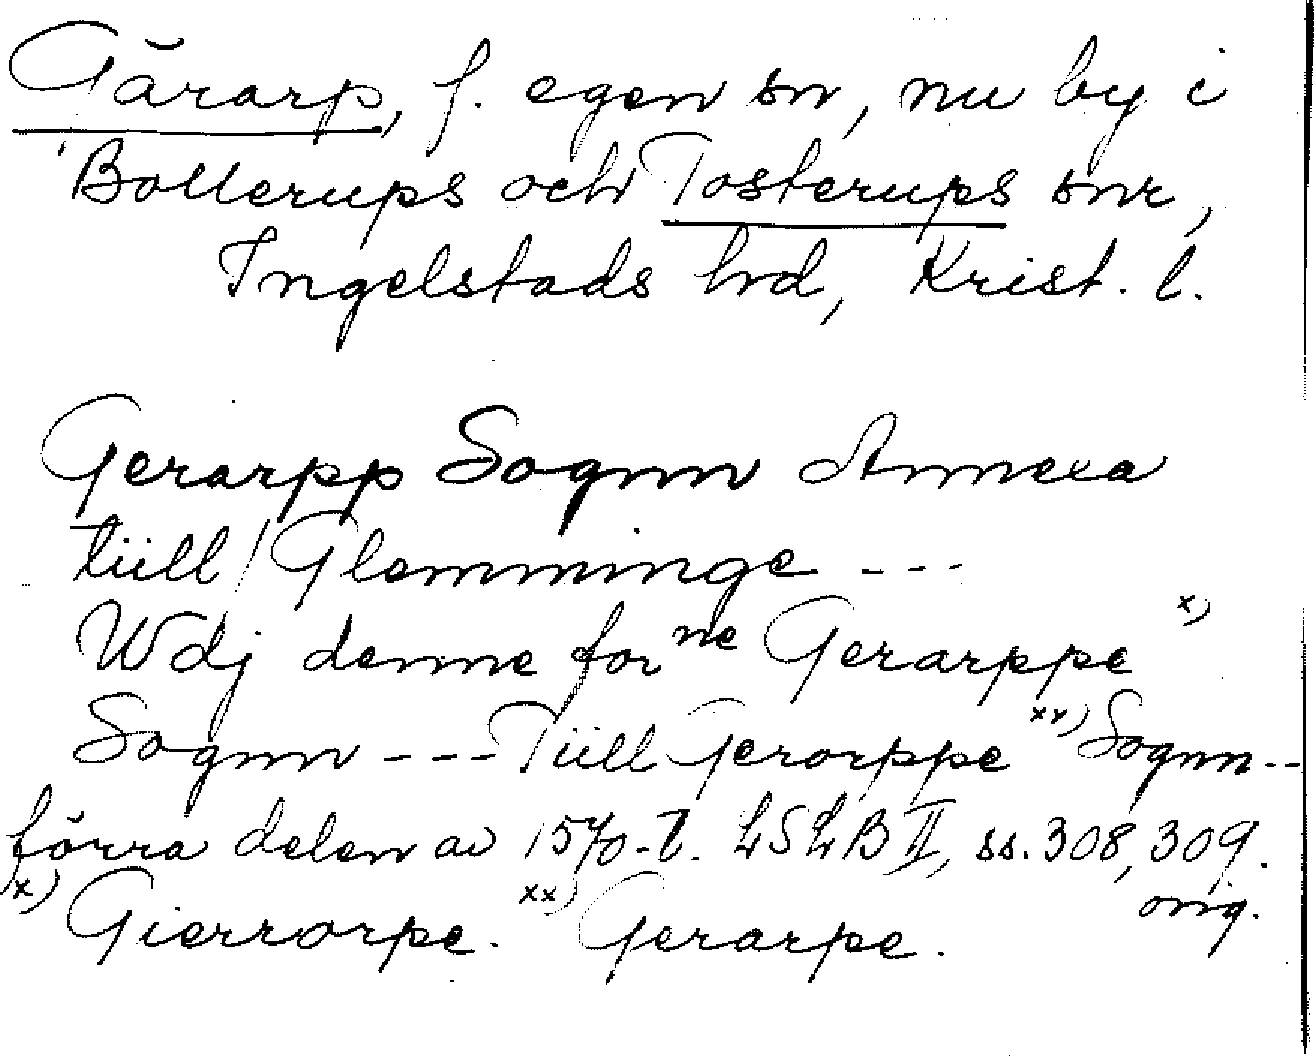 Gärarp, f. egen sn, nu by i
Bollerups och Tosterups snr,
Ingelstads hrd, Krist. l.
Gerarpp Sognn Annexa
tüll / Glemminge ---
Wdj denne forne Gerarppe x)
Sognn --- Tüll Gerorppe xx) Sognn --
förra delen av 1570-t. LSLB II, ss. 308, 309.
orig.
x) Gierrorpe. xx) Gerarpe.